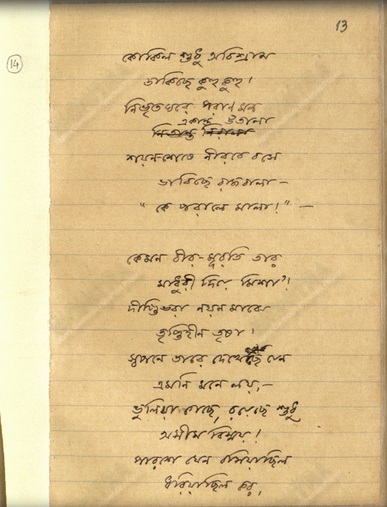 13
14
কোকিল শুধু অবিশ্রাম
ডাকিছে কুহু কুহু!
নিভৃত ঘরে পরাণ মন
একান্ত উতালা
শয়ন-শেষে নীরবে বসে
ভাবিছে রাজবালা—
"কে পরালে মালা!" —
কেমন বীর-মুরতি তার
মাধুরী দিয়ে মিশা'!
দীপ্তিভরা নয়ন মাঝে
তৃপ্তিহীন তৃষা!
স্বপনে তারে দেখেছে যেন
এমনি মনে লয়,—
ভুলিয়া গেছে, রয়েছে শুধু
অসীম বিস্ময়!
পারশে যেন বসিয়াছিল
ধরিয়াছিল কর,